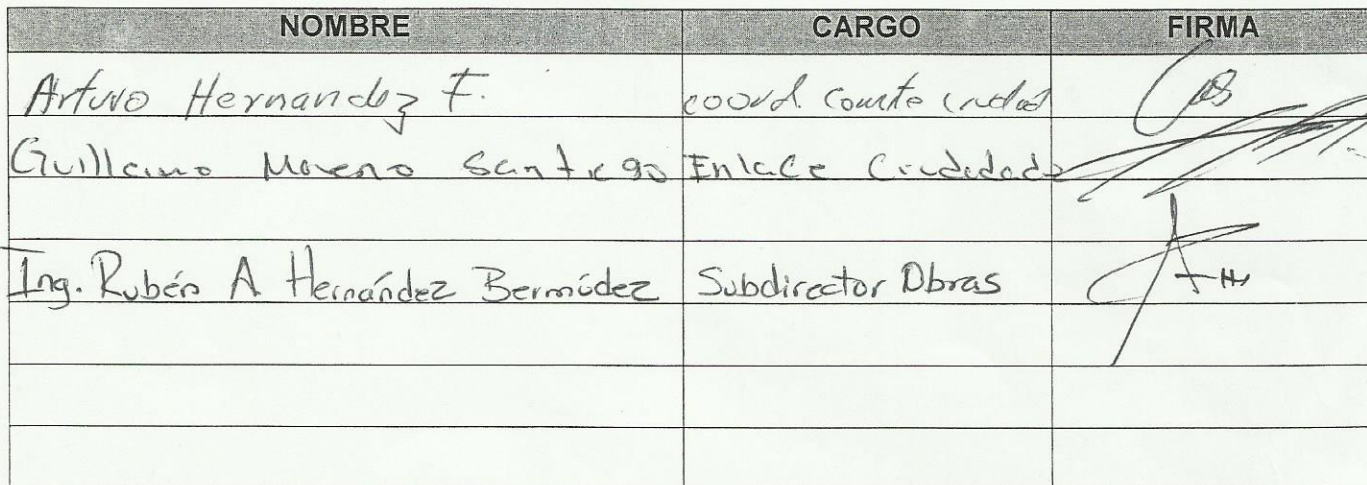 NOMBRE CARGO FIRMA
Arturo Hernandez F. coord. comite ciudad
Guillermo Moreno Santiago Enlace Ciudadado
Ing. Rubén A Hernández Bermúdez Subdirector Obras